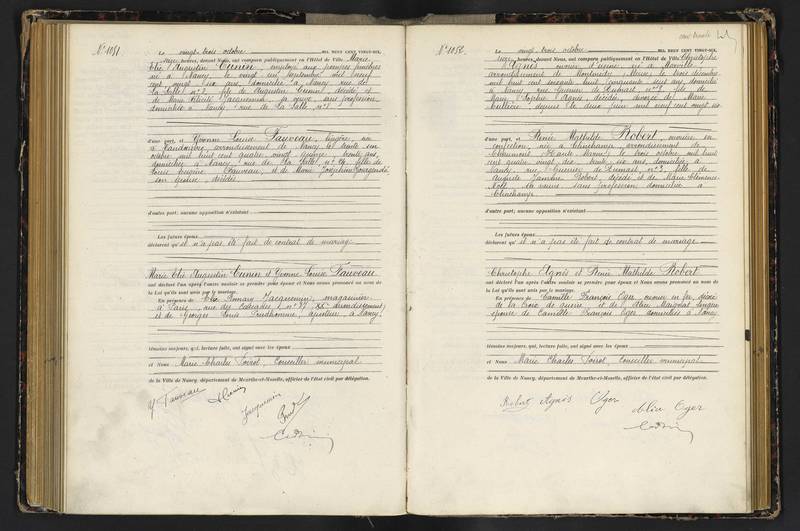 N° 1051
Le vingt-trois octobre MIL NEUF CENT VINGT-SIX,
heures, devant Nous, ont comparu publiquement en l'Hôtel de Ville Marie
Elie Augustin Cunin, employé aux pompes funèbres
né à Nancy, le vingt un septembre mil neuf
cent, vingt six ans, domicilié à Nancy rue de
La Salle n° 2 fils de Augustin Cunin, décédé, et
de Marie Félicité Jacquemin, sa veuve, sans profession
domiciliée à Nancy, rue de La Salle n° 2
d'une part, et Yvonne Louise Fauveau, lingère, née
à arrondissement de Nancy, le trente un
octobre mil huit cent quatre vingt quinze, trente ans,
domiciliée à Nancy, rue de La Salle, n° fille de
Louis Eugène Fauveau, et de Marie Joséphine
son épouse, décédés
d'autre part; aucune opposition n'existant
Les futurs époux
déclarent qu'il n'a pas été fait de contrat de mariage
Marie Elie Augustin Cunin et Yvonne Louise Fauveau
ont déclaré l'un après l'autre vouloir se prendre pour époux et Nous avons prononcé au nom de
la Loi qu'ils sont unis par le mariage.
En présence de Elie Jacquemin, magasinier
à Paris, rue des n° 37 (XX° arrondissement)
et de Georges Louis Prudhomme, à Nancy
témoins majeurs, qui, lecture faite, ont signé avec les époux
et Nous Marie Charles Poirot, Conseiller municipal
de la Ville de Nancy, département de Meurthe-et-Moselle, officier de l'état civil par délégation.
Y Fauveau
Cunin
Jacquemin
N° 1052
Le vingt-trois octobre MIL NEUF CENT VINGT-SIX,
heures, devant Nous, ont comparu publiquement en l'Hôtel de Ville Christophe
Agnès ouvrier d'usine né à Marville,
arrondissement de Montmédy (Meuse) le trois décembre
mil huit cent soixante huit, cinquante sept ans, domicilié
à Nancy rue Guerrier de Dumast n° 3, fils de
Marie Sophie Agnès, décédée, divorcé de Marie
depuis le deux juin mil neuf cent vingt six
d'une part, et Renée Mathilde Robert, ouvrière en
confection, née à Clinchamp arrondissement de
Chaumont (Haute Marne), le trois octobre mil huit
cent quatre vingt six ans, domiciliée à
Nancy, rue Guerrier de Dumast, n° 3, fille de
Robert, décédé et de Marie Clémence
sa veuve sans profession domiciliée à
Clinchamp
d'autre part; aucune opposition n'existant
Les futurs époux
déclarent qu'il n'a pas été fait de contrat de mariage
Christophe Agnès et Renée Mathilde Robert
ont déclaré l'un après l'autre vouloir se prendre pour époux et Nous avons prononcé au nom de
la Loi qu'ils sont unis par le mariage.
En présence de Camille François Oger ouvrier en fer, décoré
de la croix de guerre, et de Alice
épouse de Camille François Oger domiciliés à Nancy
témoins majeurs, qui, lecture faite, ont signé avec les époux
et Nous Marie Charles Poirot, Conseiller municipal
de la Ville de Nancy, département de Meurthe-et-Moselle, officier de l'état civil par délégation.
Robert Agnès Oger
Alice Oger